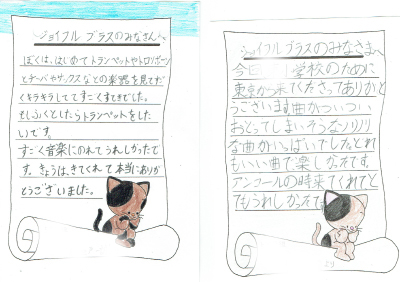 ジョイフル ブラスのみなさんへ
ぼくは、はじめてトランペットやトロンボーン
とチーバやサックスなどの楽器を見てだ
くキラキラしててすごくすてきでした。
もしふくとしたらトランペットをした
いです。
すごく音楽にのれてうれしかったで
す。きょうは、きてくれて本当にありが
とうございました。
ジョイフルブラスのみなさまへ
今日 学校のために
東京から来てくださってありがと
うございます。曲がついつい
おどってしまいそうなノリノリ
な曲がいっぱいでした。どれ
もいい曲で楽しかったです。
アンコールの時来てくれてと
てもうれしかったです。